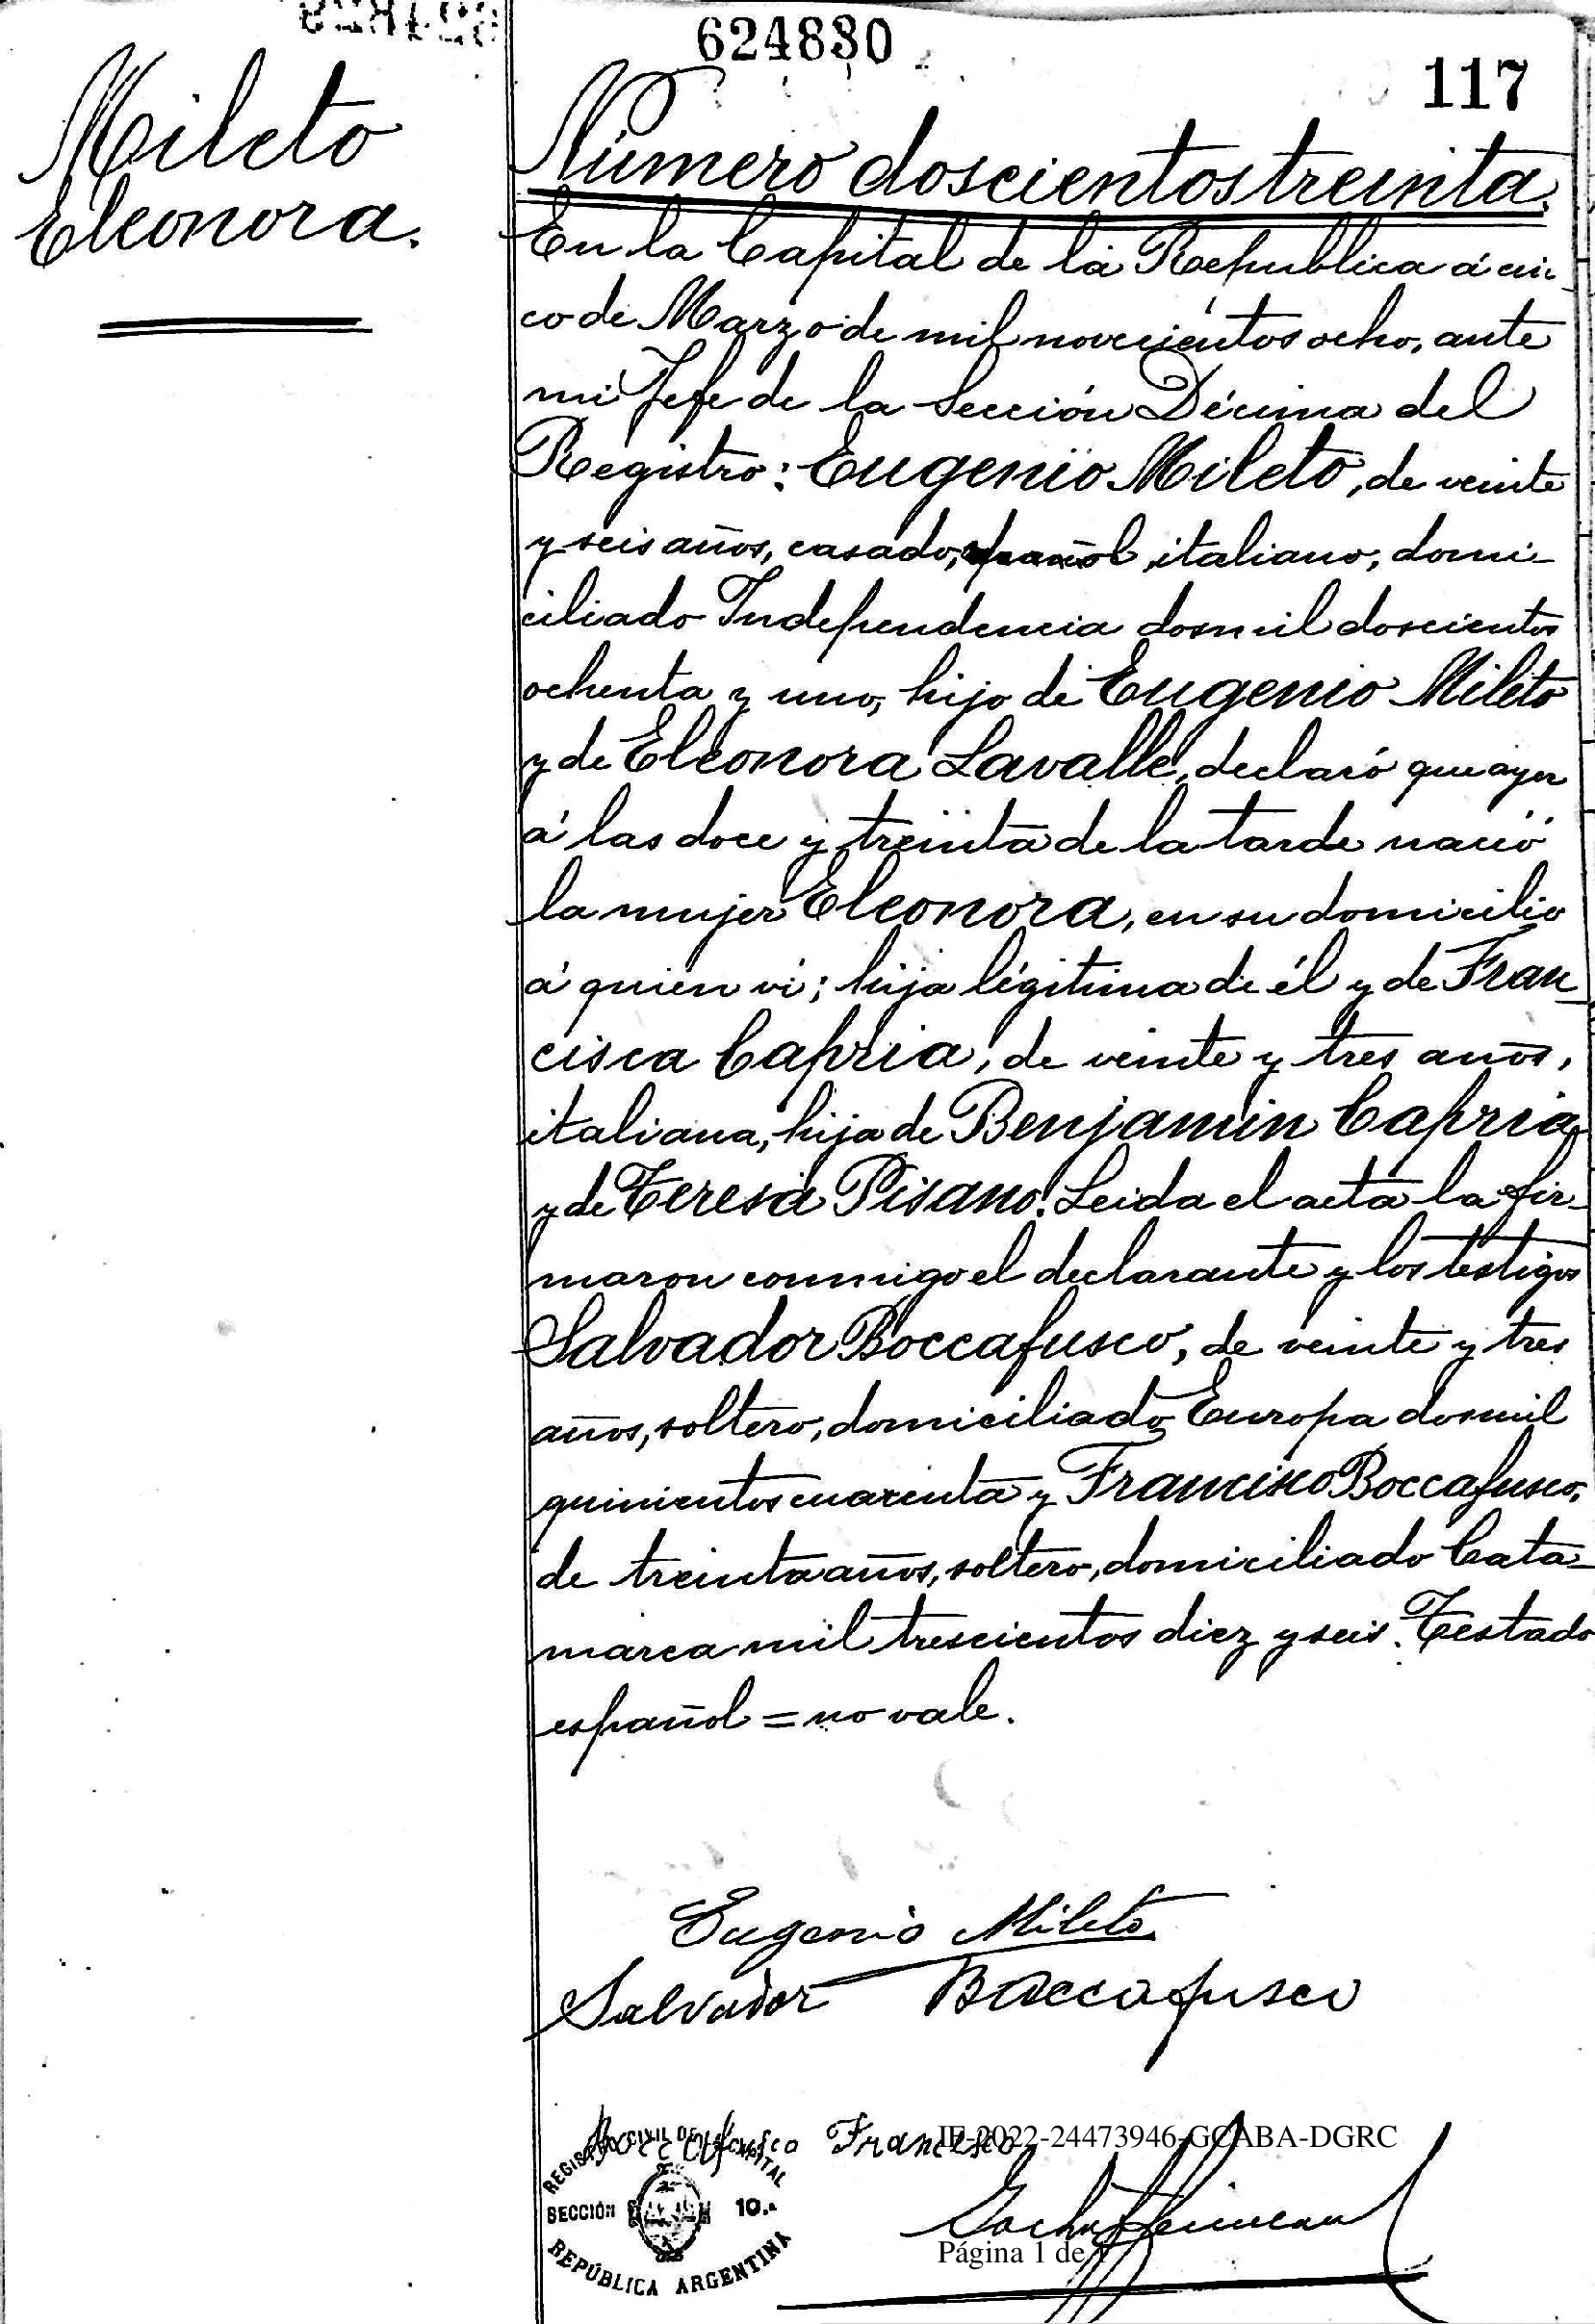 624830
117
Mileto
Eleonora.
Número doscientos treinta.
En la Capital de la Republica á cin-
co de Marzo de mil novecientos ocho, ante
mi Jefe de la Sección Décima del
Registro: Eugenio Mileto, de veinte
y seis años, casado, español, italiano, domi-
ciliado Independencia dosmil doscientos
ochenta y uno, hijo de Eugenio Mileto
y de Eleonora Lavalle, declaró que ayer
á las doce y treinta de la tarde nació
la mujer Eleonora, en su domicilio
á quien ví; hija légitima de él y de Fran-
cisca Capria, de veinte y tres años,
italiana, hija de Benjamin Capria
y de Teresa Pisano. Leida el acta la fir-
maron conmigo el declarante y los testigos
Salvador Boccafusco, de veinte y tres
años, soltero, domiciliado Europa dosmil
quinientos cuarenta y Francisco Boccafusco,
de treinta años, soltero, domiciliado Cata-
marca mil trescientos diez y seis. Testado
español = no vale.
Eugenio Mileto
Salvador Boccafusco
Boccafusco Francesco
IF-2022-24473946-GCABA-DGRC
REGISTRO CIVIL DE LA CAPITAL
SECCIÓN 10.a
REPÚBLICA ARGENTINA
Página 1 de 1